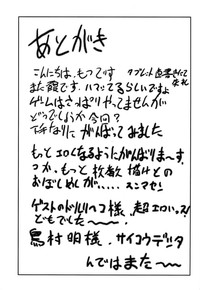 あとがき
こんにちは、もつです
また霞です。ハマってるらしいですよ
ゲームはさっぱりやってませんが
どうでしょうか今回?
がんばってみました
もっとエロくなるようにがんばりまーす。
つか、もっと枚数描けとの
おぼしめしが、、、、スンマセン!
ゲストのドルリヘコ様、超エロいっス!
どもでした〜〜!
鳥村明様、サイコウデシタ
んではまた〜〜